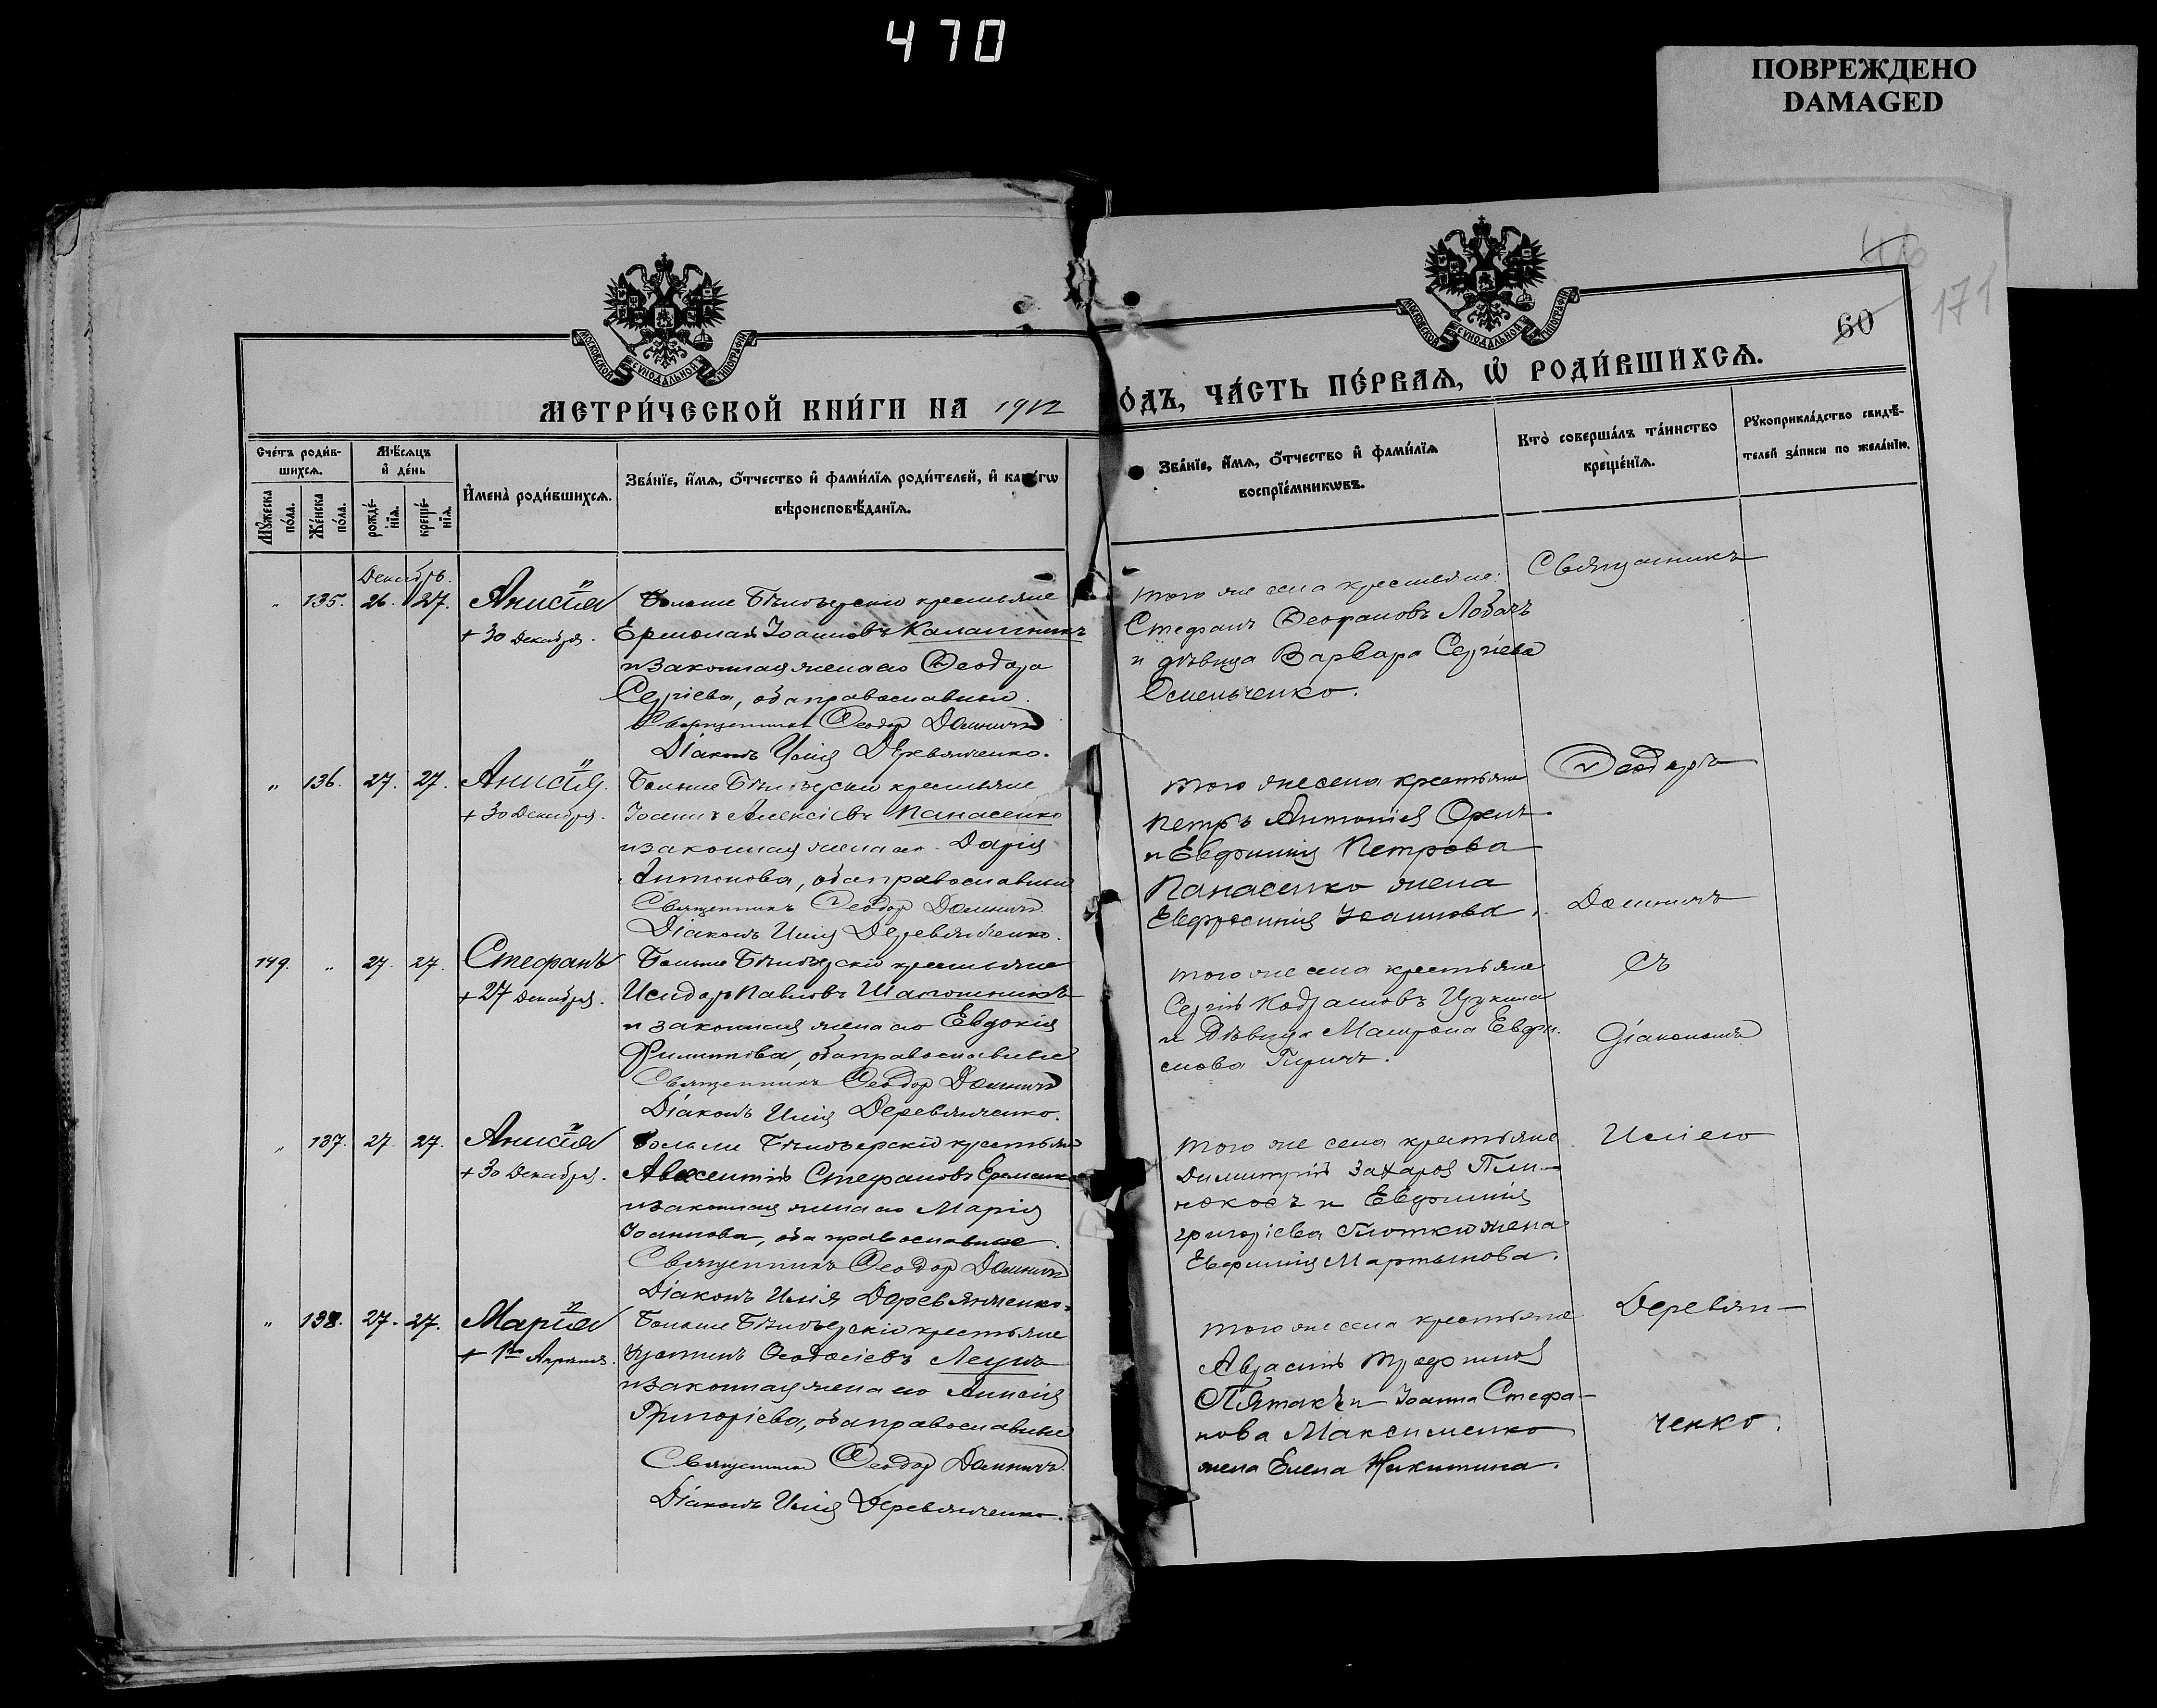 470
ПОВРЕЖДЕНО
DAMAGED
171
60
МОСКОВСКОЙ СѴНОДАЛЬНОЙ ТИПОГРАФІИ
МОСКОВСКОЙ СѴНОДАЛЬНОЙ ТИПОГРАФІИ
МЕТРИ́ЧЕСКОЙ КНИ́ГИ НА 1912
О́ДЪ, ЧА́СТЬ ПЕ́РВАѦ, Ѡ҆ РОДИ́ВШИХСѦ.
Сче́тъ роди́в-
шихсѧ.
Мꙋ́жеска по́ла.
Же́нска по́ла.
Мѣ́сѧцъ и҆ де́нь
рожде́-
нїѧ.
креще́-
нїѧ.
И҆мена̀ роди́вшихсѧ.
Зва́нїе, и҆́мѧ, ѻ҆́тчество и҆ фами́лїѧ роди́телей, и҆ ка гѡ
вѣроисповѣ́данїѧ.
Зва́нїе, и҆́мѧ, ѻ҆́тчество и҆ фами́лїѧ
воспрїе́мникѡвъ.
Кто̀ соверша́лъ та́инство
креще́нїѧ.
Рꙋкоприкла́дство свидѣ́-
телей за́писи по жела́нїю.
Декабрь.
" 135. 26. 27. Анисія
+ 30 Декабря.
Больше Бѣлозерскіе крестьяне
Ермолай Іоанновъ Калашникъ
и законная жена его Ѳеодора
Сергіева, оба православные.
Священникъ Ѳеодоръ Домничъ
Діаконъ Илія Деревянченко.
того же села крестьяне:
Стефанъ Ѳеофановъ Лобачъ
и дѣвица Варвара Сергіева
Омельченко.
Священникъ
" 136. 27. 27. Анисія.
+ 30 Декабря.
Больше Бѣлозерскіе крестьяне
Іоаннъ Алексіевъ Панасенко
и законная жена его Дарія
Антонова, оба православные
Священникъ Ѳеодоръ Домничъ.
Діаконъ Илія Деревянченко.
того же села крестьяне
Петръ Антоніев
и Евфимія Петрова
Панасенко жена
Евфросинія Іоаннова.
Ѳеодоръ
Домничъ
149. " 27. 27. Стефанъ
+ 27 Декабря.
Больше Бѣлозерскіе крестьяне
Исидоръ Павловъ Шапошникъ
и законная жена его Евдокія
Филиппова, оба православные
Священникъ Ѳеодоръ Домничъ
Діаконъ Илія Деревянченко.
того же села крестьяне
Сергій
и Дѣвица Матрона Евфи-
мова
съ
діакономъ
" 137. 27. 27. Анисія
+ 30 Декабря.
Больше Бѣлозерскіе крестьяне
Авксентій Стефановъ Ерменко
и законная жена его Марія
Іоаннова, оба православные.
Священникъ Ѳеодоръ Домничъ
Діаконъ Илія Деревянченко.
того же села крестьяне
Димитрій Захаров
и Евфимія
Григоріева жена
Евфимія Мартынова.
Иліею
" 138. 27. 27. Марія
+ 1го Апрѣля.
Больше Бѣлозерскіе крестьяне
Іустинъ Ѳеодосіевъ Лещъ
и законная жена его Анисія
Григоріева, оба православные
Священникъ Ѳеодоръ Домничъ.
Діаконъ Илія Деревянченко.
того же села крестьяне
Трофимов
Пятакъ и Іоанна Стефа-
нова Максименко
жена Елена Никитина.
Деревян-
ченко.